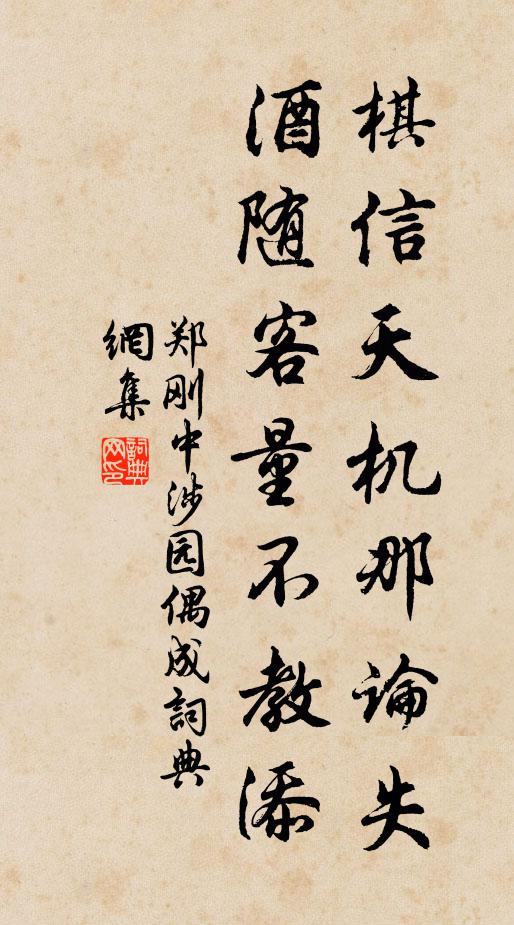 棋信天机那论失
酒随客量不教添
郑刚中涉园偶成詞典
網集
詞典
网印